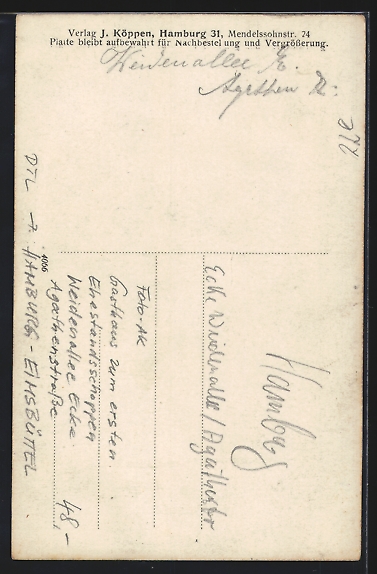 Verlag J. Köppen, Hamburg 31, Mendelssohnstr. 24
Platte bleibt aufbewahrt für Nachbestellung und Vergrößerung.
Weidenallee E.
272
DTL → HAMBURG - EIMSBÜTTEL
4066
Foto-AK
Gasthaus zum ersten
Ehestandsschoppen
Weidenallee Ecke
Agathenstraße
48,-
Ecke Weidenallee / Agathestr
Hamburg